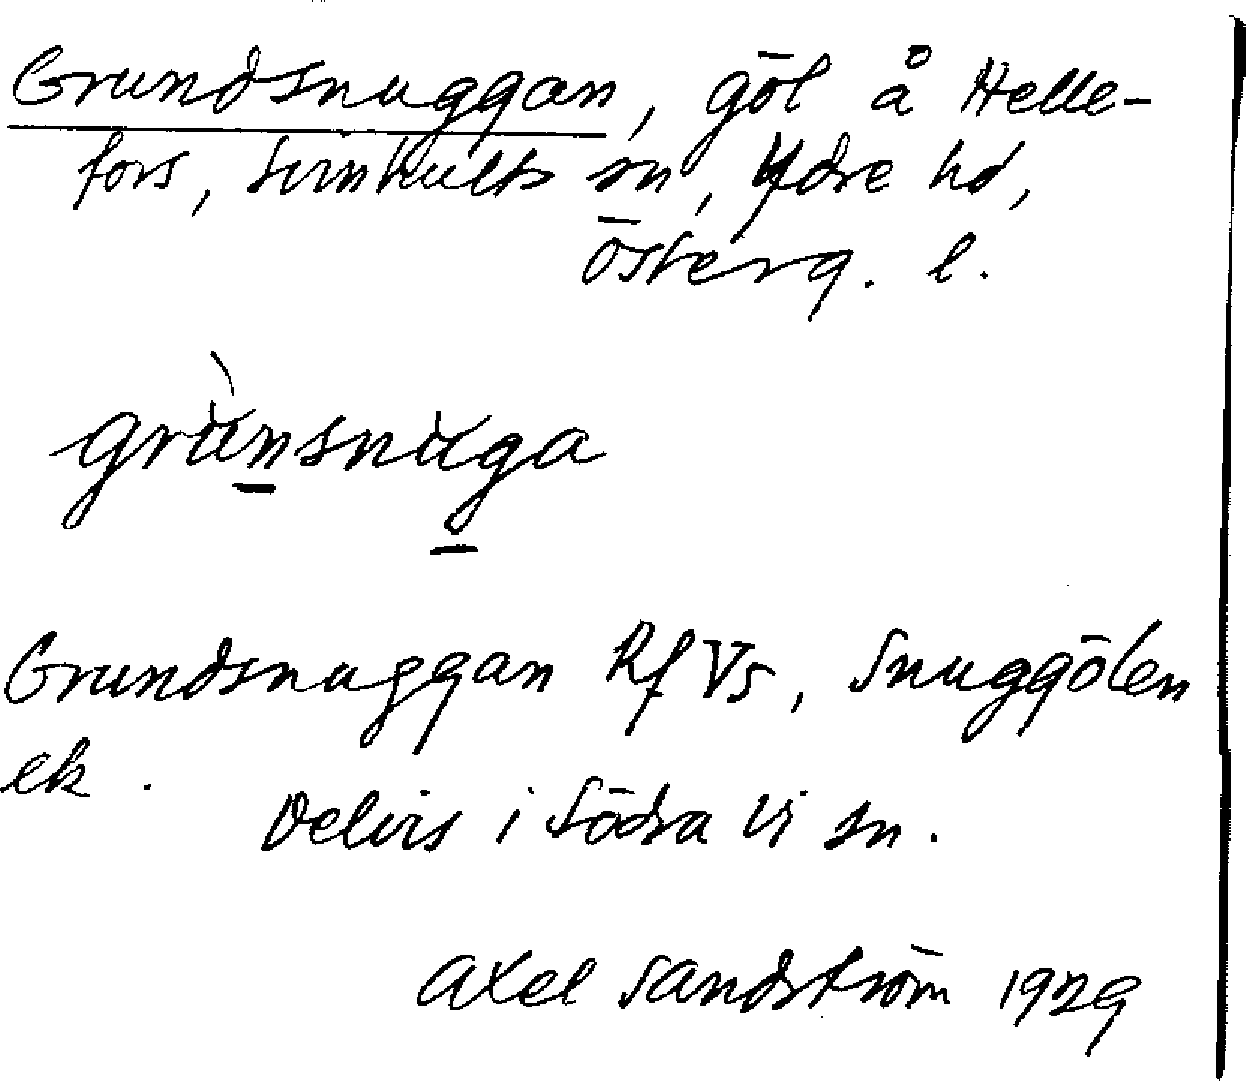 Grundsnuggan, göl å Helle-
fors, Svinhults sn, Ydre hd,
Österg. l.
grùnsnuga
Grundsnuggan Rf Vs, Snuggölen
ek.
Delvis i Södra Vi sn.
Axel Sandström 1929